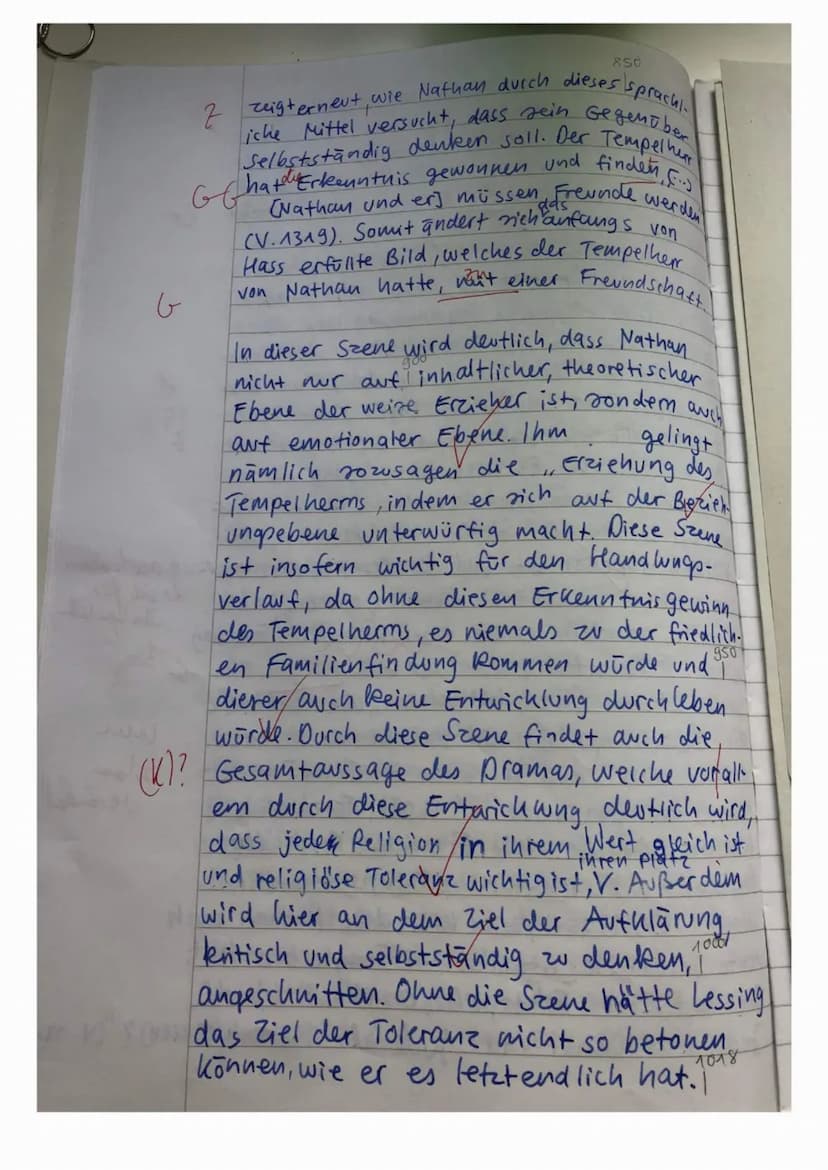 850
Z zeigt erneut, wie Nathan durch dieses sprachl-
iche Mittel versucht, dass sein Gegenüber
selbstständig denken soll. Der Tempelherr
die
G G hat Erkenntnis gewonnen und findet, (...)
[Nathan und er] müssen Freunde werden
das
(V.1319). Somit ändert sich anfangs von
Hass erfüllte Bild, welches der Tempelherr
zu
G von Nathan hatte, mit einer Freundschaft.
In dieser Szene wird deutlich, dass Nathan
900
nicht nur auf inhaltlicher, theoretischer
Ebene der weise Erzieher ist, sondern auch
auf emotionaler Ebene. Ihm gelingt
nämlich sozusagen die „Erziehung des
Tempelherrns, indem er sich auf der Bezieh-
ungsebene unterwürfig macht. Diese Szene
ist insofern wichtig für den Handlungs-
verlauf, da ohne diesen Erkenntnisgewinn
des Tempelherrns, es niemals zu der friedlich-
950
en Familienfindung kommen würde und
dieser auch keine Entwicklung durchleben
würde. Durch diese Szene findet auch die
(K)? Gesamtaussage des Dramas, welche vorall-
em durch diese Entwicklung deutlich wird,
dass jede Religion in ihrem Wert gleich ist
ihren Platz
und religiöse Toleranz wichtig ist, V. Außerdem
wird hier an dem Ziel der Aufklärung,
1000
kritisch und selbstständig zu denken,
angeschnitten. Ohne die Szene hätte Lessing
das Ziel der Toleranz nicht so betonen
1018
können, wie er es letztendlich hat.